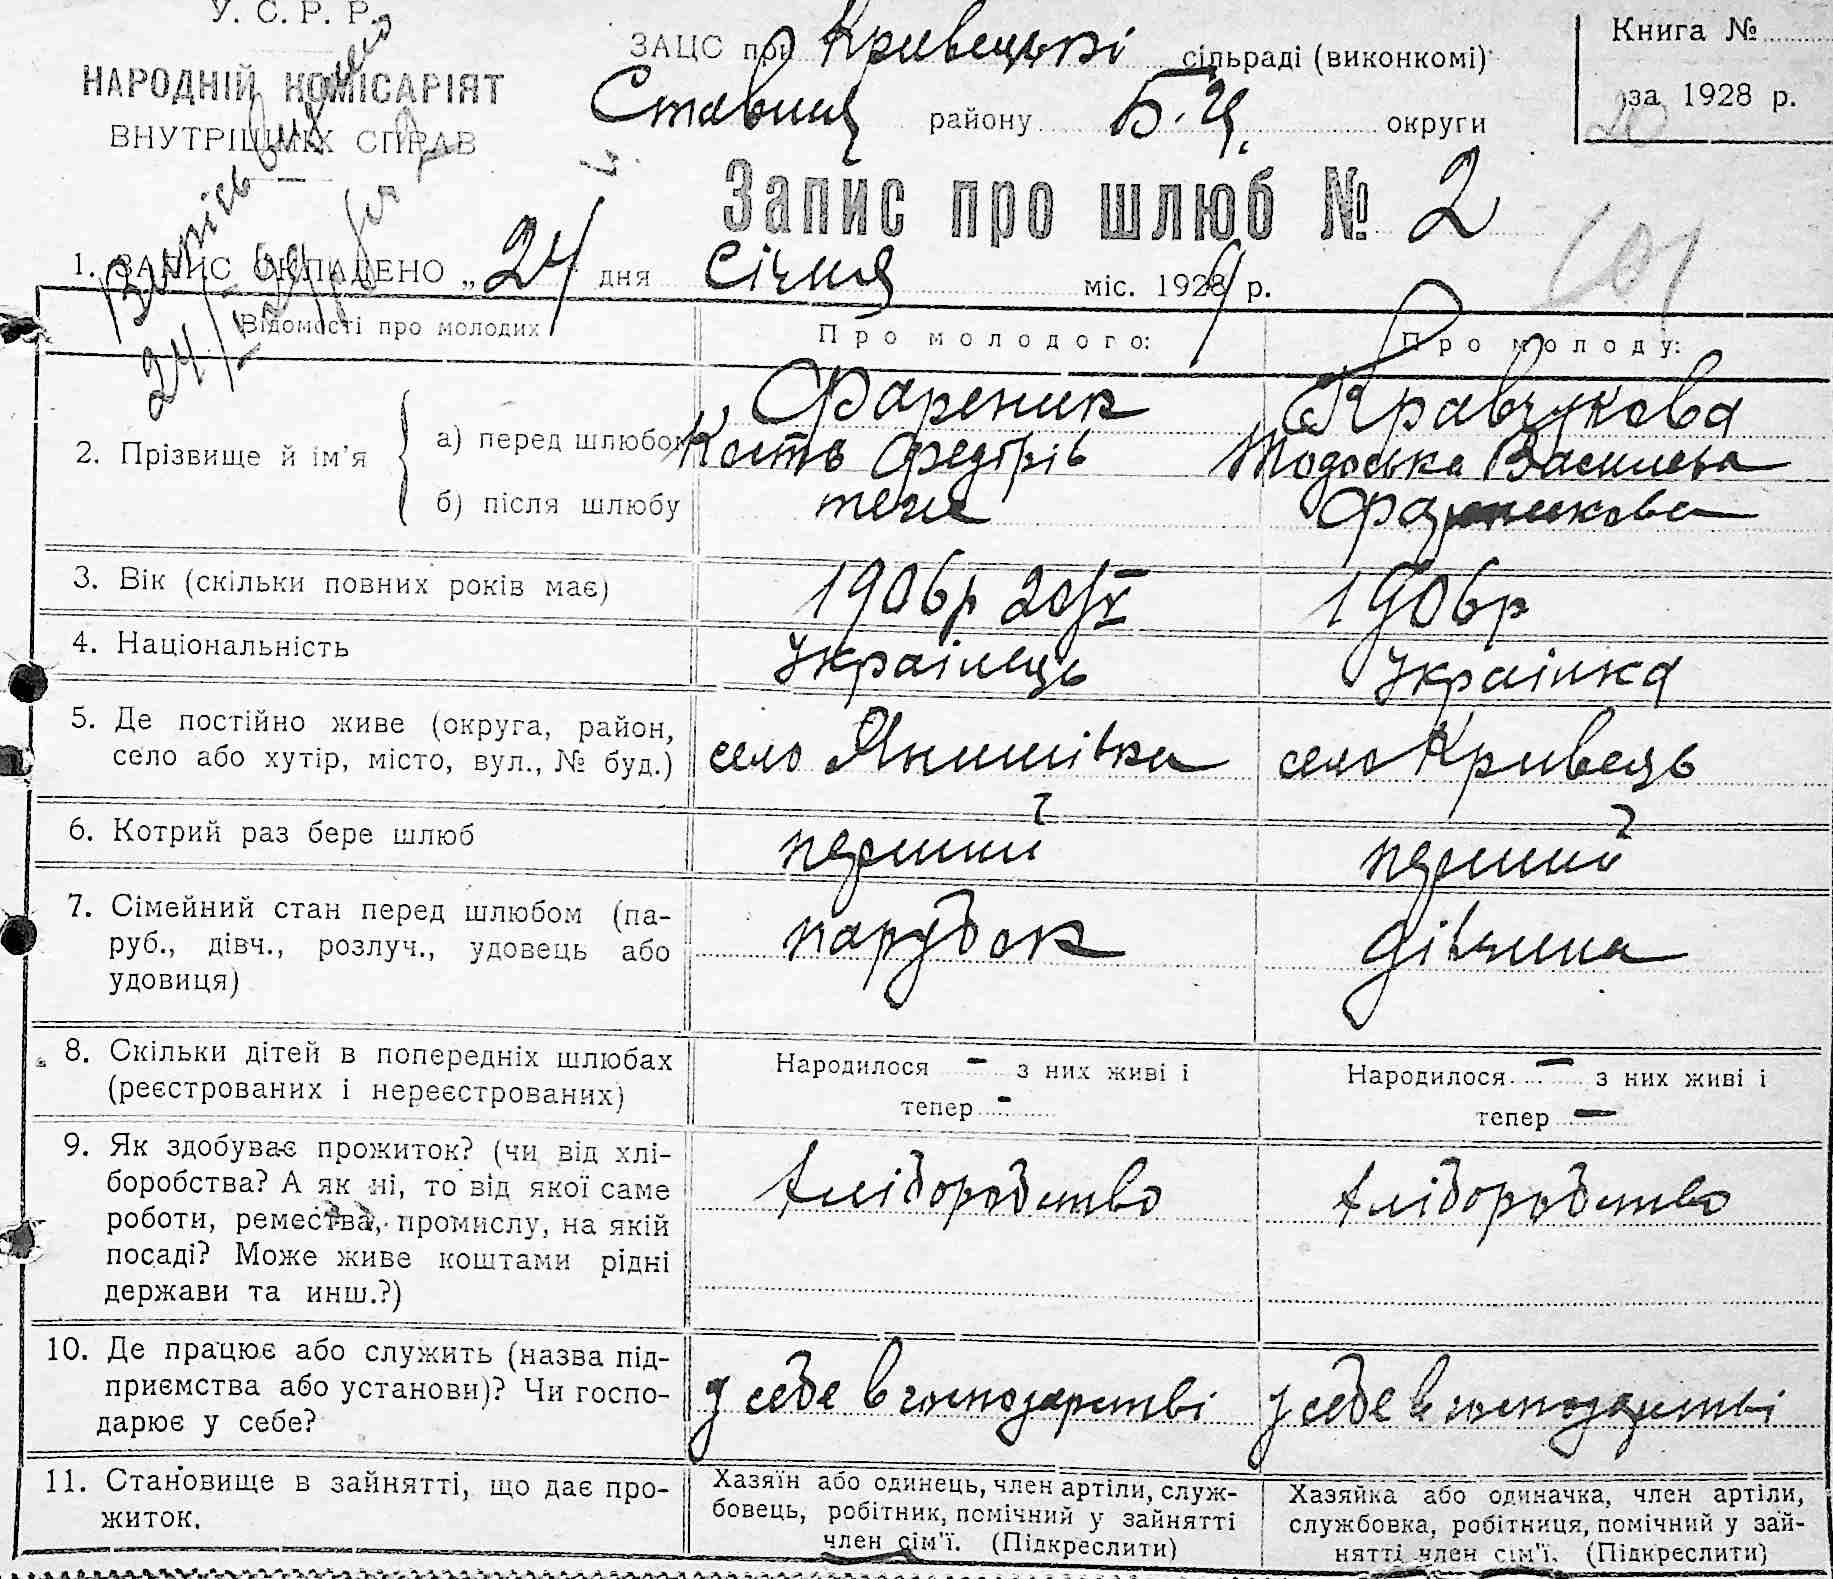 У. С. Р. Р.
НАРОДНІЙ КОМІСАРІЯТ
ВНУТРІШНІХ СПРАВ
ЗАЦС при Кривецькі сільраді (виконкомі)
Ставищ району Б.Ц. округи
Книга №
за 1928 р.
Запис про шлюб № 2
Випись видано
24/I-29р
1. ЗАПИС СКЛАДЕНО „24“ дня січня міс. 1929 р.
Відомості про молодих
Про молодого:
Про молоду:
2. Прізвище й ім'я
а) перед шлюбом
Фареник
Кость Федорів
Кравчукова
Тодоська Василева
б) після шлюбу
теж
Фареникова
3. Вік (скільки повних років має)
1906р 20/V
1906р
4. Національність
Українець
Українка
5. Де постійно живе (округа, район,
село або хутір, місто, вул., № буд.)
село Якимівка
село Кривець
6. Котрий раз бере шлюб
перший
перший
7. Сімейний стан перед шлюбом (па-
руб., дівч., розлуч., удовець або
удовиця)
парубок
дівчина
8. Скільки дітей в попередніх шлюбах
(реєстрованих і нереєстрованих)
Народилося - з них живі і
тепер -
Народилося - з них живі і
тепер -
9. Як здобуває прожиток? (чи від хлі-
боробства? А як ні, то від якої саме
роботи, ремества, промислу, на якій
посаді? Може живе коштами рідні
держави та инш.?)
хліборобство
хліборобство
10. Де працює або служить (назва під-
приємства або установи)? Чи госпо-
дарює у себе?
у себе в господарстві
у себе в господарстві
11. Становище в зайнятті, що дає про-
житок.
Хазяїн або одинець, член артіли, служ-
бовець, робітник, помічний у зайнятті
член сім'ї. (Підкреслити)
Хазяйка або одиначка, член артіли,
службовка, робітниця, помічний у зай-
нятті член сім'ї. (Підкреслити)